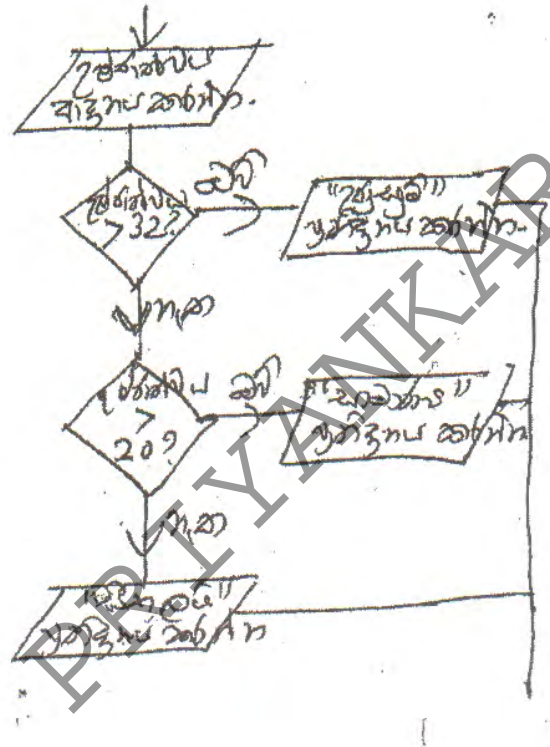 උෂ්ණත්වය
ආදානය කරන්න.
උෂ්ණත්වය
> 32?
ඔව්
"උණුසුම්"
ප්‍රතිදානය කරන්න.
නැත
උෂ්ණත්වය
>
20?
ඔව්
"සාමාන්‍ය"
ප්‍රතිදානය කරන්න
නැත
ප්‍රතිදානය කරන්න
PRIYANKAR